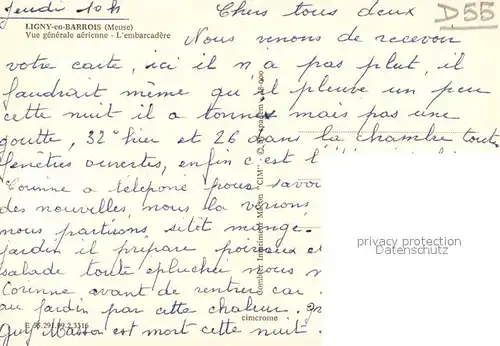 Jeudi 10 h
Chers tous deux
D55
LIGNY-en-BARROIS (Meuse)
Vue générale aérienne - L'embarcadère
Nous venons de recevoir
votre carte, ici il n'a pas plut, il
faudrait même qu'il pleuve un peu
cette nuit il a tonner mais pas une
goutte, 32° hier et 26 dans la chambre toute
fenêtres ouvertes, enfin c'est l'
Corinne a télépone pour savoi
des nouvelles, nous la verions
nous partirons, sitit mange.
jardin il prépare poireaux et
salade toute eplucher nous
Corinne avant de rentrer car
au jardin par cette chaleur.
Guy Masson est mort cette nuit
E 55.291.99.2.3316
cimcrome
Combier Imprimeur Mâcon "CIM"
privacy protection
Datenschutz